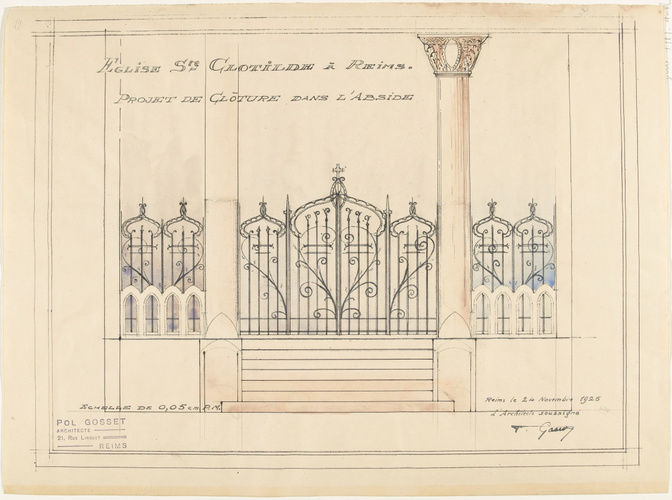 EGLISE STE CLOTILDE À REIMS.
PROJET DE CLÔTURE DANS L'ABSIDE
ECHELLE DE 0,05 cm P.M.
POL GOSSET
ARCHITECTE
21, RUE
REIMS
Reims le 24 Novembre 1926
L'Architecte soussigné
P. Gosset